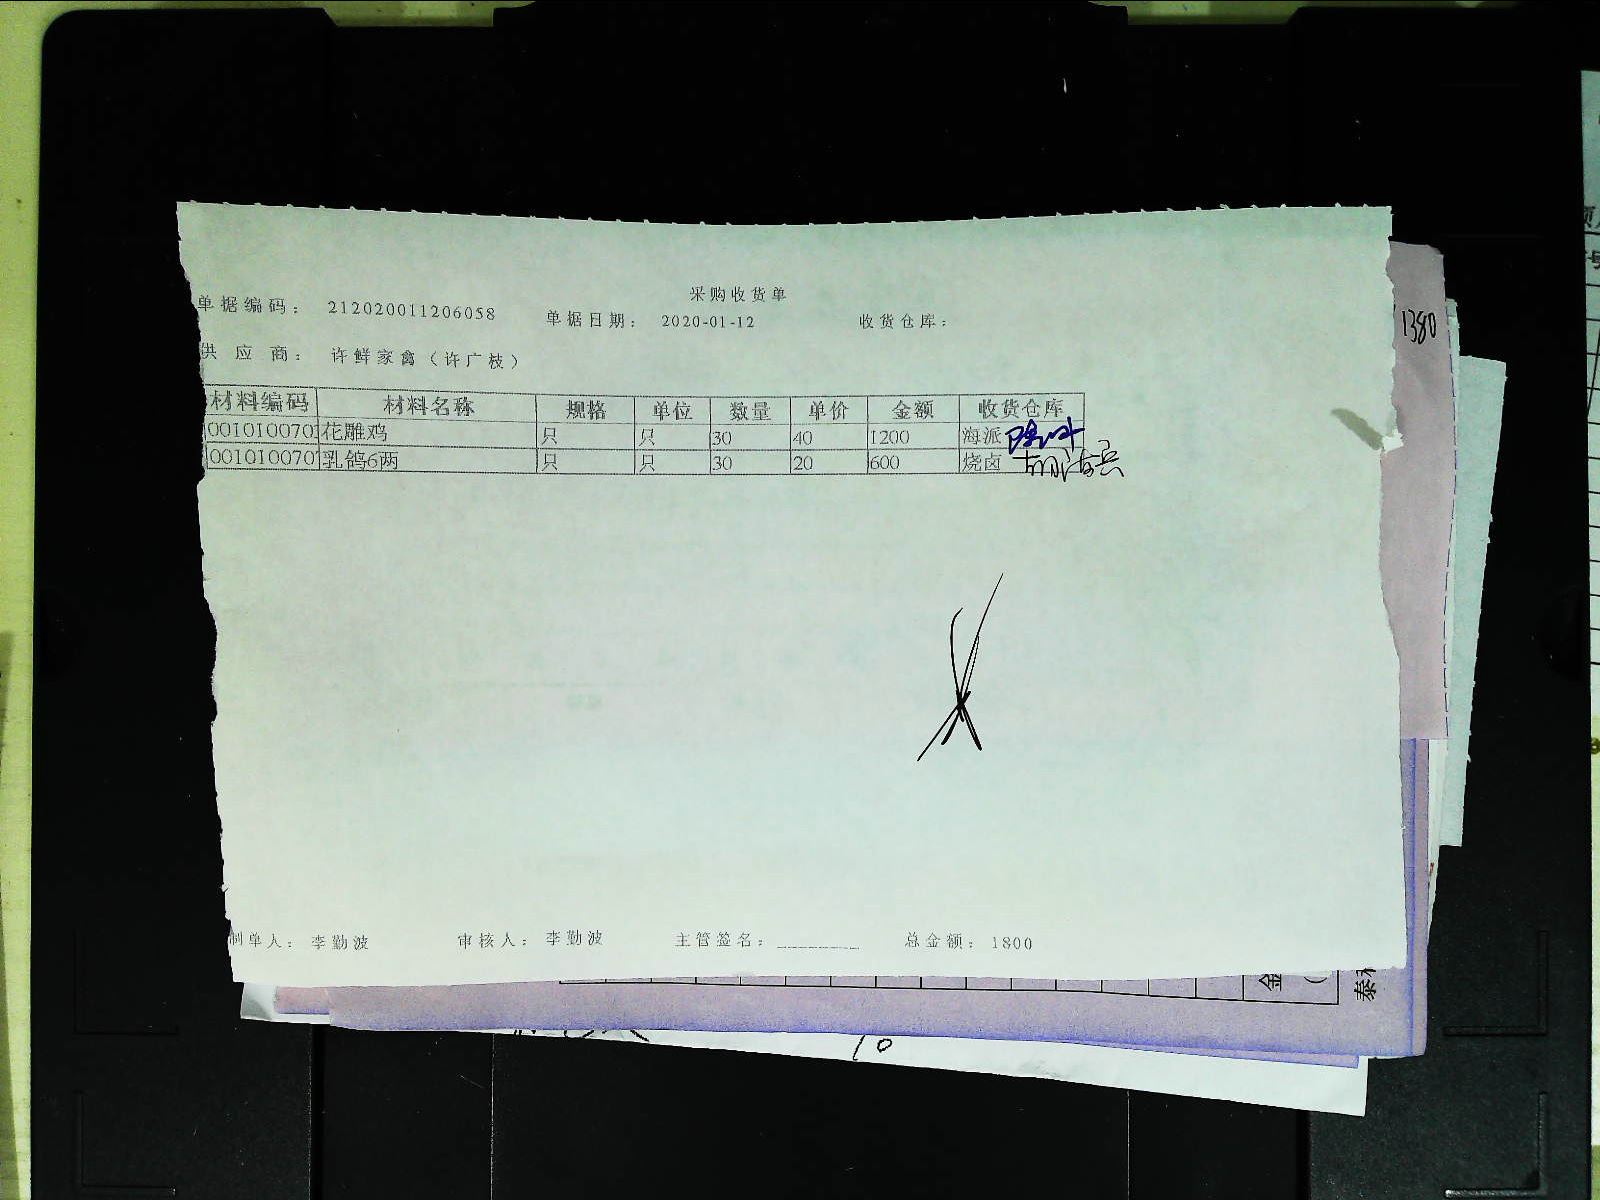 采购收货单
单据编码： 212020011206058 单据日期： 2020-01-12 收货仓库：
供 应 商： 许鲜家禽（许广枝）
材料编码 材料名称 规格 单位 数量 单价 金额 收货仓库
00101007 花雕鸡 只 只 30 40 1200 海派
0010100707 乳鸽6两 只 只 30 20 600 烧卤
制单人： 李勤波 审核人： 李勤波 主管签名： 总金额： 1800
1380
金
泰
10